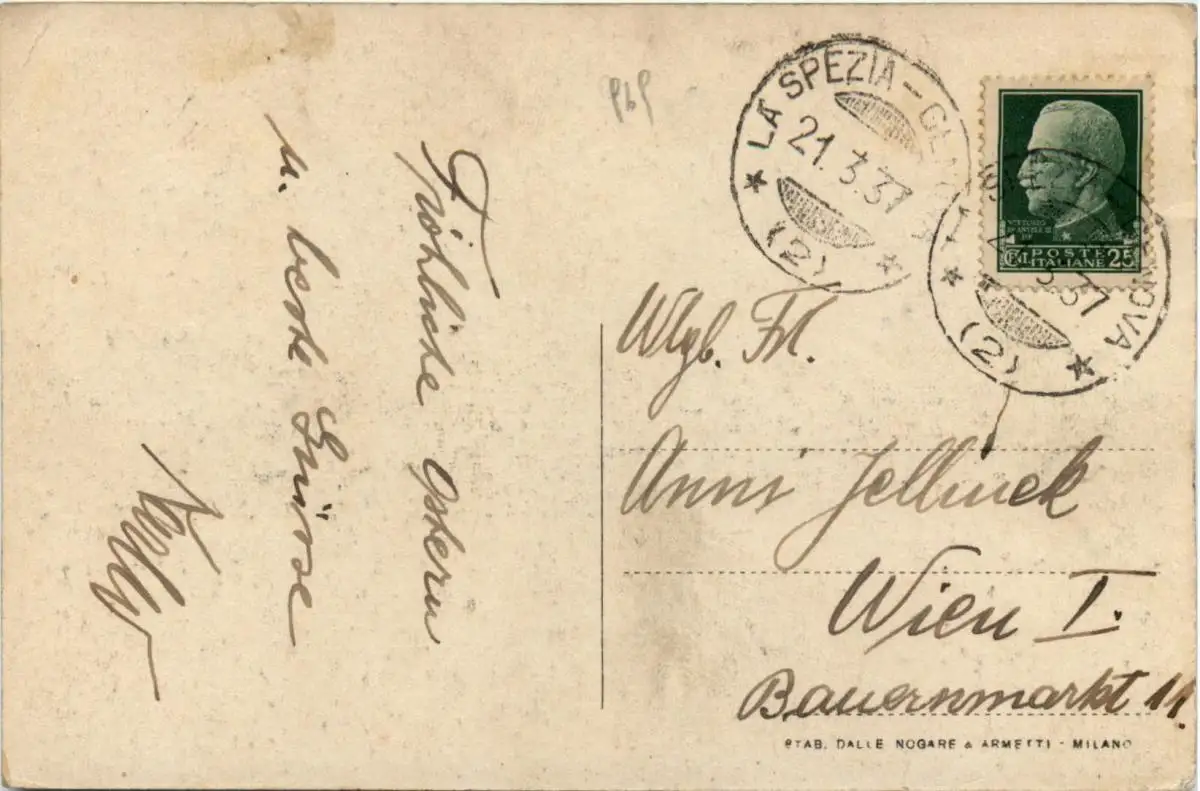 Fröhliche Ostern
u. beste Grüsse
LA SPEZIA - GENOVA
21.3.37
(2)
VITTORIO
EM ANVELE III
POSTE
ITALIANE 25
GENOVA
3.37
(2)
Wlgb. Frl.
Anni Jellinek
Wien I.
Bauernmarkt 11.
STAB. DALLE NOGARE & ARMETTI - MILANO